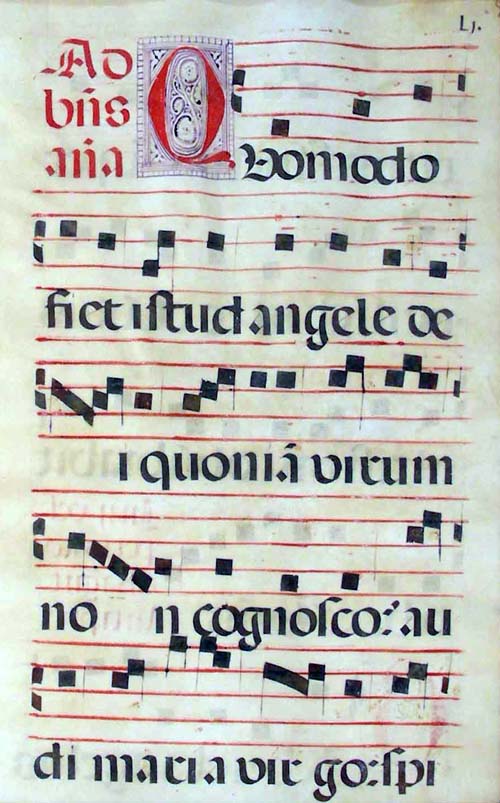 Lj.
Ad
bn̄s
an̄a
Quomodo
fiet istud angele de
i quoniā virum
no n cognosco: au
di maria vir go: spi